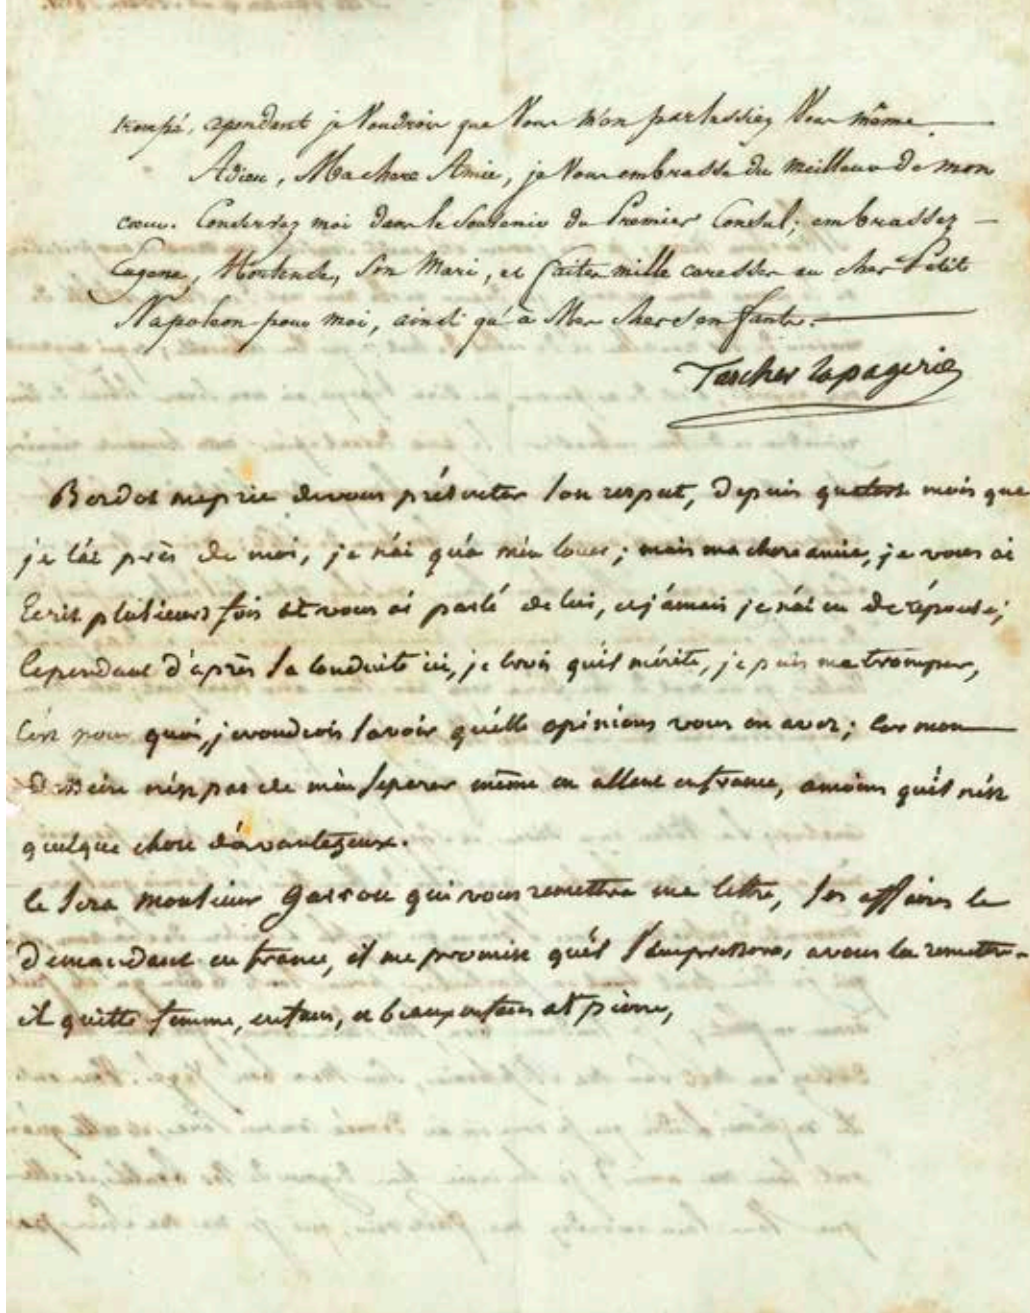 trompé, cependant je Voudrois que Vous m'en parlassiez Vous même.
Adieu, Ma chere Amie, je Vous embrasse du meilleur de mon
cœur. Conservez moi dans le Souvenir du Premier Consul; embrassez
Eugene, Hortense, Son Mari, et faites mille caresses au cher Petit
Napoleon pour moi, ainsi qu'à Mes chers enfants.
Tascher Lapagerie
me prie de vous présenter son respect, Depuis mois que
je l'ai près de moi, je n'ai qu'a m'en louer; mais ma chere amie, je vous ai
Ecrit plusieurs fois et vous ai parlé de lui, et jámais je n'ai eu de réponse;
Cependant d'après sa conduite ici, je crois qu'il mérite, je puis me tromper,
C'est pour quoi, je voudrois savoir qu'elle opinions vous en avez; Car mon
n'est pas de m'en separer même en allant en france, amoins qu'il n'est
quelque chose d'avantageux.
Ce sera monsieur qui vous remettra ma lettre, ses affaires le
Demandant en france, il me promise qu'il avous la remettre
il quitte femme, enfans, et